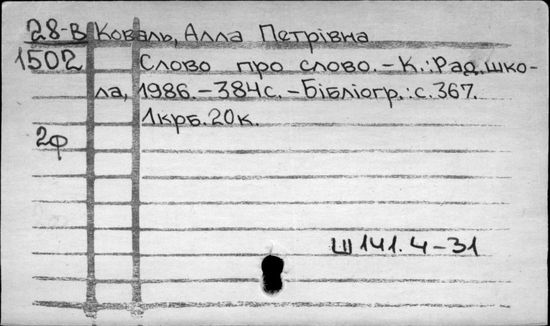 28-В Коваль, Алла Петрівна
1502 Слово про слово.-К.:Рад.шко-
ла, 1986.-384с.-Бібліогр.:с.367.
1крб.20к.
2ф
Ш141.4-31